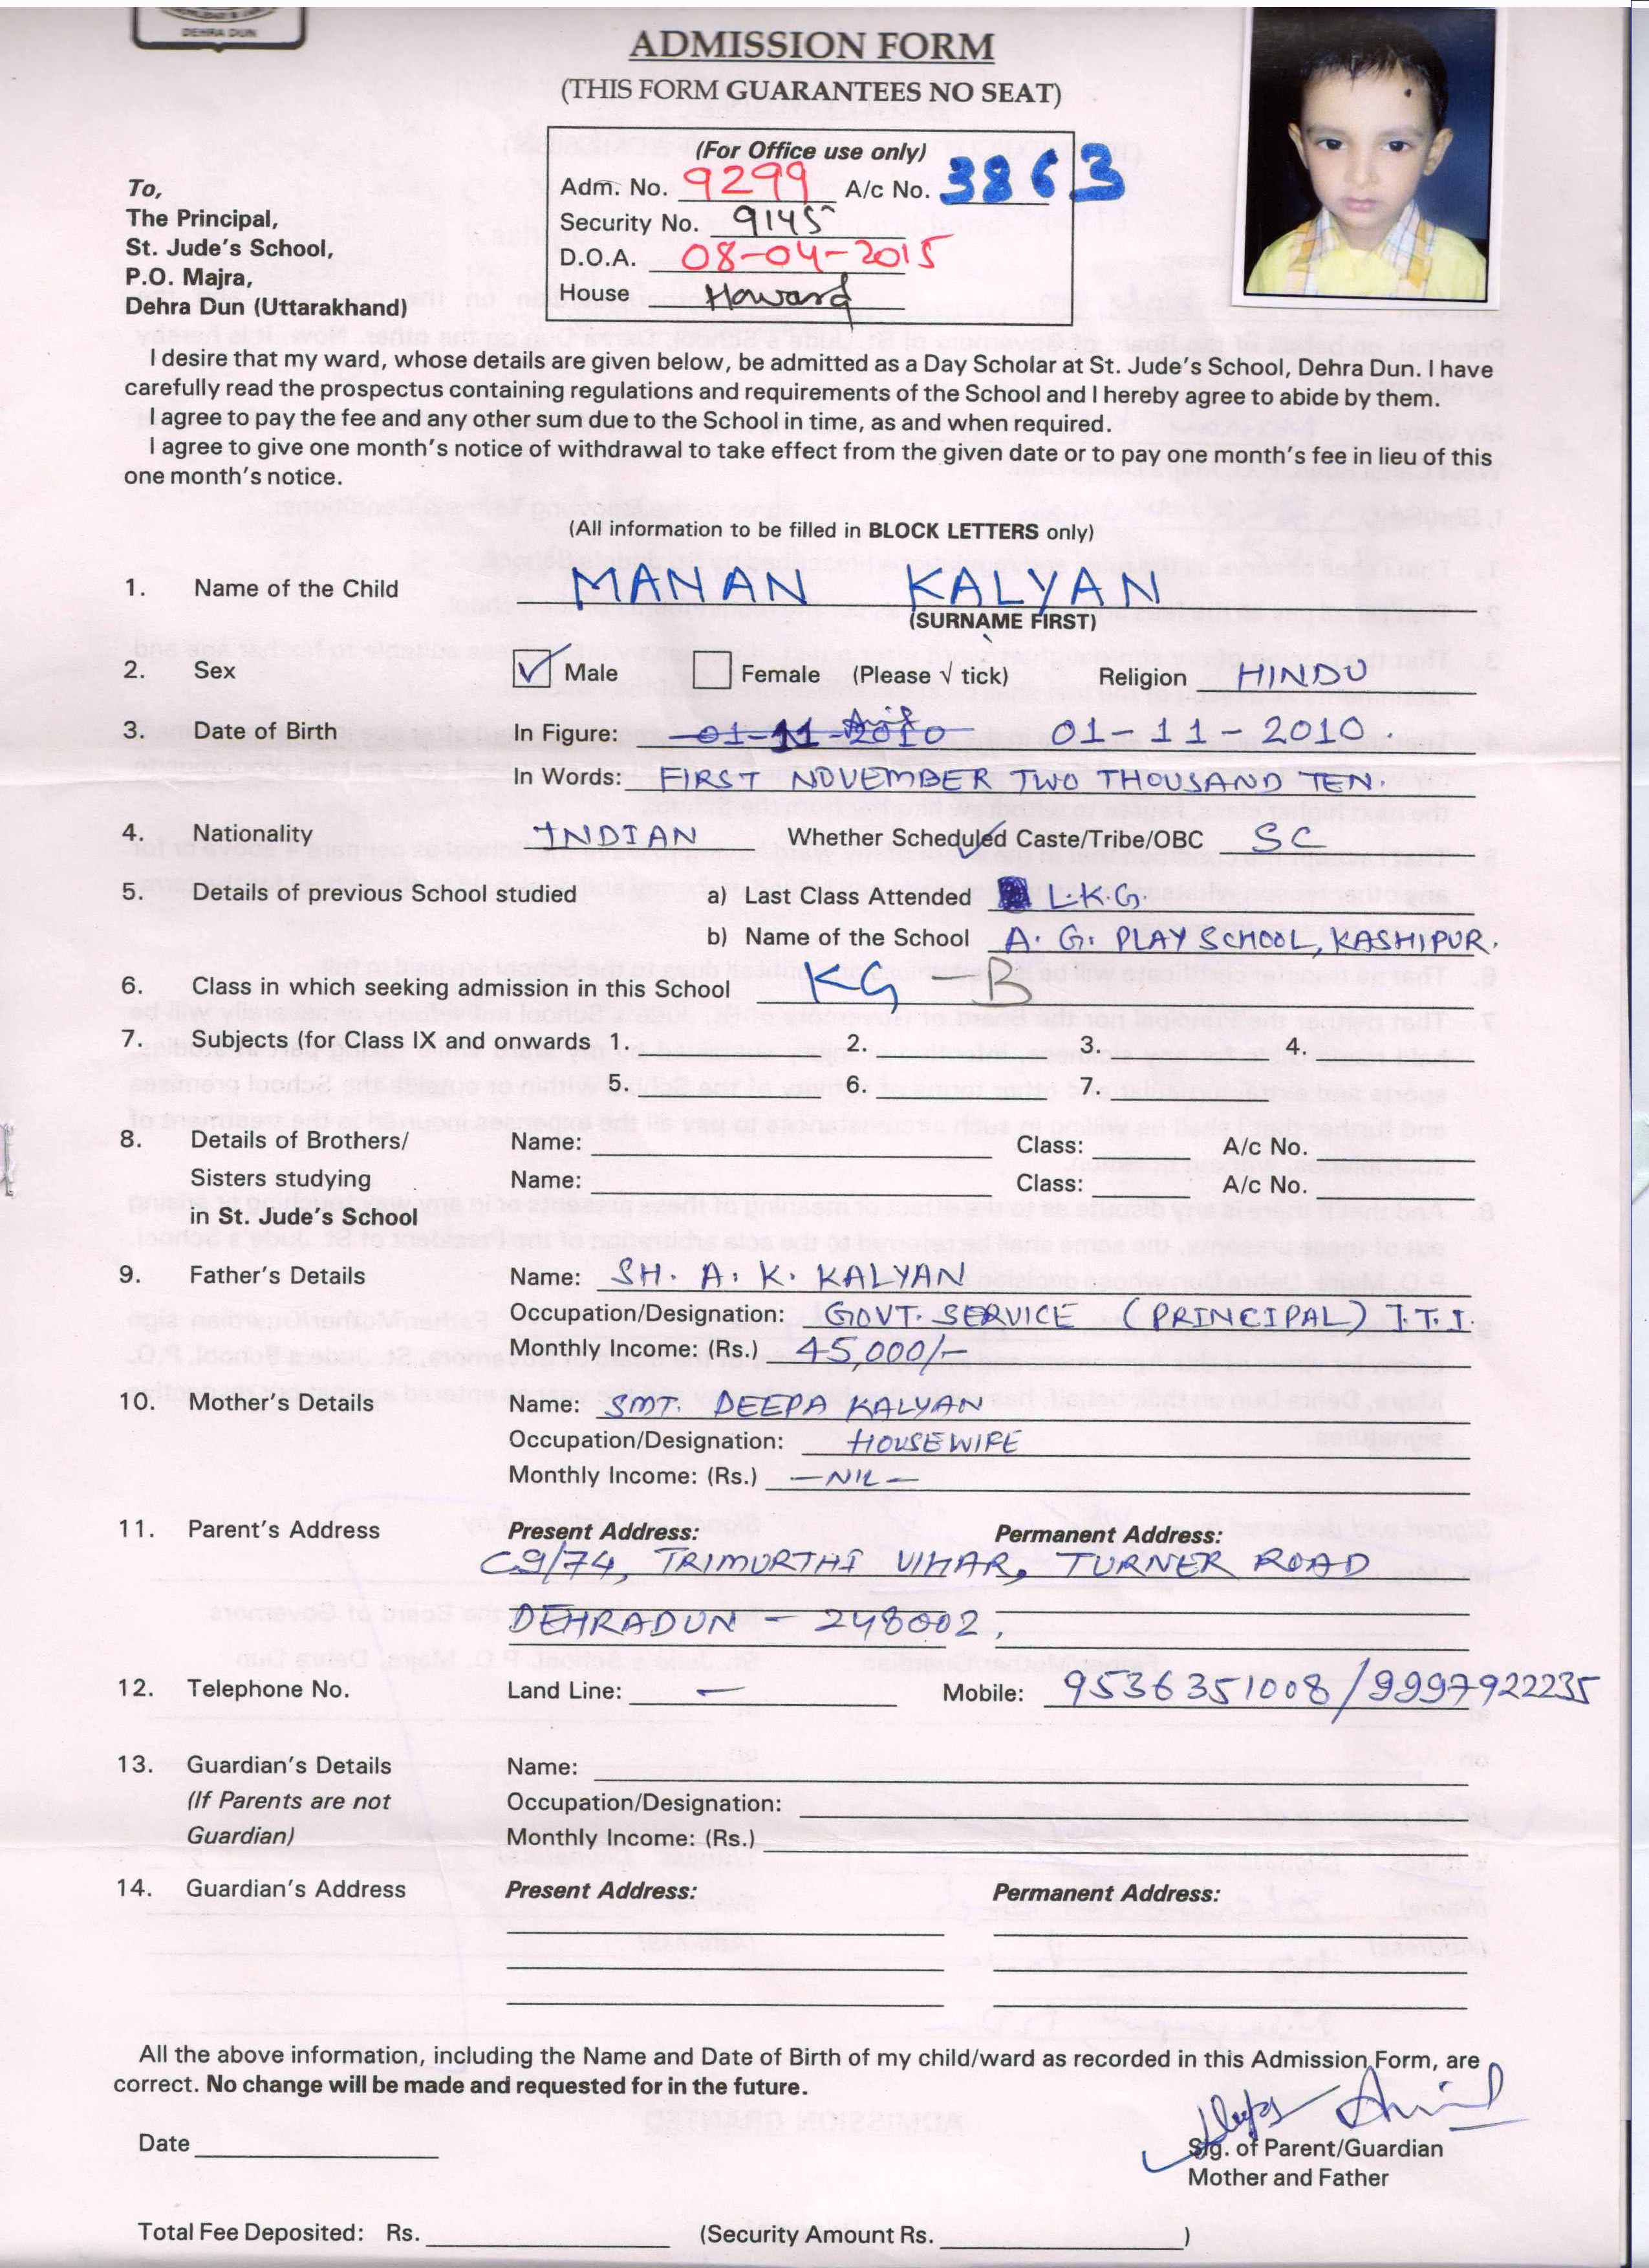 DEHRA DUN
ADMISSION FORM
(THIS FORM GUARANTEES NO SEAT)
(For Office use only)
Adm. No. 9299 A/c No. 3863
Security No. 9145
D.O.A. 08-04-2015
House Howard
To,
The Principal,
St. Jude's School,
P.O. Majra,
Dehra Dun (Uttarakhand)
I desire that my ward, whose details are given below, be admitted as a Day Scholar at St. Jude's School, Dehra Dun. I have
carefully read the prospectus containing regulations and requirements of the School and I hereby agree to abide by them.
I agree to pay the fee and any other sum due to the School in time, as and when required.
I agree to give one month's notice of withdrawal to take effect from the given date or to pay one month's fee in lieu of this
one month's notice.
(All information to be filled in BLOCK LETTERS only)
1. Name of the Child MANAN KALYAN
(SURNAME FIRST)
2. Sex Male Female (Please √ tick) Religion HINDU
3. Date of Birth In Figure: 01-11-2010 01-11-2010.
In Words: FIRST NOVEMBER TWO THOUSAND TEN.
4. Nationality INDIAN Whether Scheduled Caste/Tribe/OBC SC
5. Details of previous School studied a) Last Class Attended L.K.G.
b) Name of the School A. G. PLAY SCHOOL, KASHIPUR.
6. Class in which seeking admission in this School KG - B
7. Subjects (for Class IX and onwards 1. 2. 3. 4.
5. 6. 7.
8. Details of Brothers/ Name: Class: A/c No.
Sisters studying Name: Class: A/c No.
in St. Jude's School
9. Father's Details Name: SH. A. K. KALYAN
Occupation/Designation: GOVT. SERVICE (PRINCIPAL) I.T.I.
Monthly Income: (Rs.) 45,000/-
10. Mother's Details Name: SMT. DEEPA KALYAN
Occupation/Designation: HOUSEWIFE
Monthly Income: (Rs.) -NIL-
11. Parent's Address Present Address: Permanent Address:
C9/74, TRIMURTHI VIHAR, TURNER ROAD
DEHRADUN - 248002.
12. Telephone No. Land Line: - Mobile: 9536351008/9997922235
13. Guardian's Details Name:
(If Parents are not Occupation/Designation:
Guardian) Monthly Income: (Rs.)
14. Guardian's Address Present Address: Permanent Address:
All the above information, including the Name and Date of Birth of my child/ward as recorded in this Admission Form, are
correct. No change will be made and requested for in the future.
Date
Sig. of Parent/Guardian
Mother and Father
Total Fee Deposited: Rs. (Security Amount Rs. )